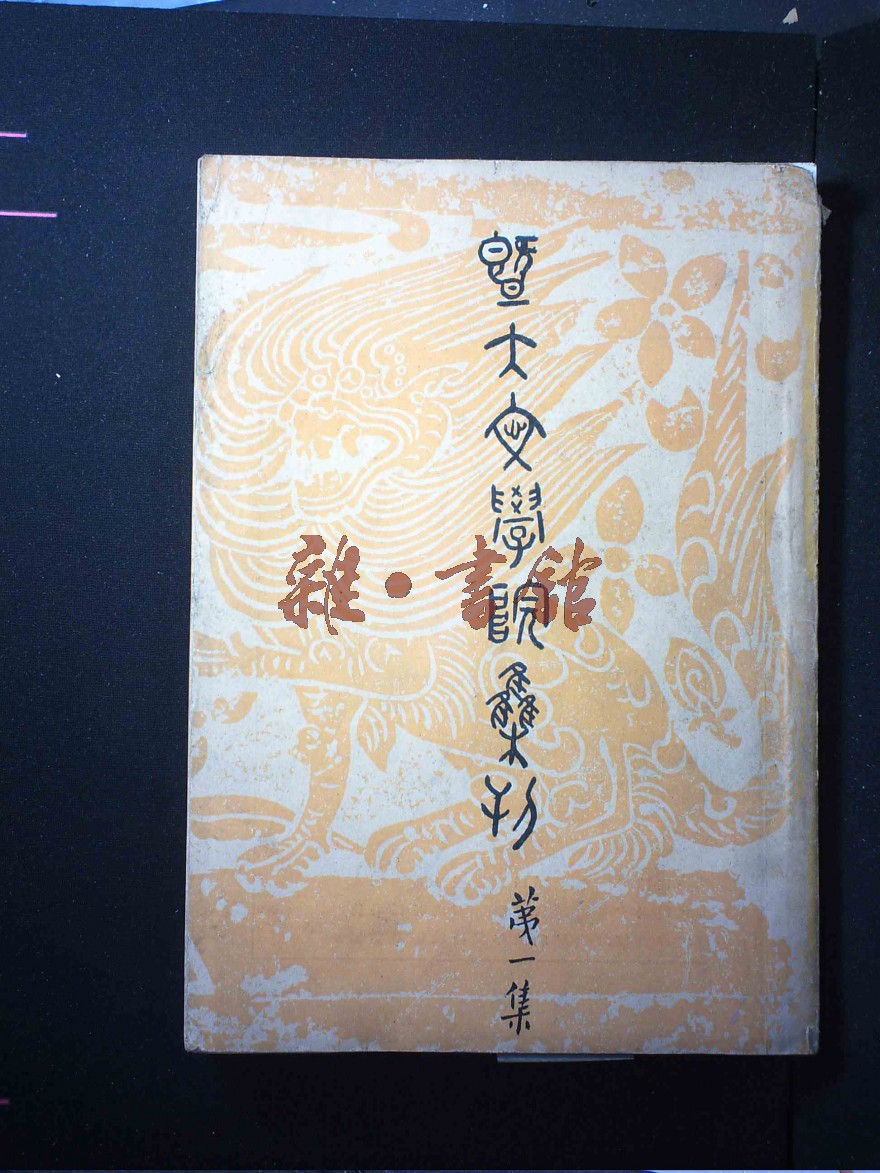 暨大文學院集刊
第一集
雜·書館